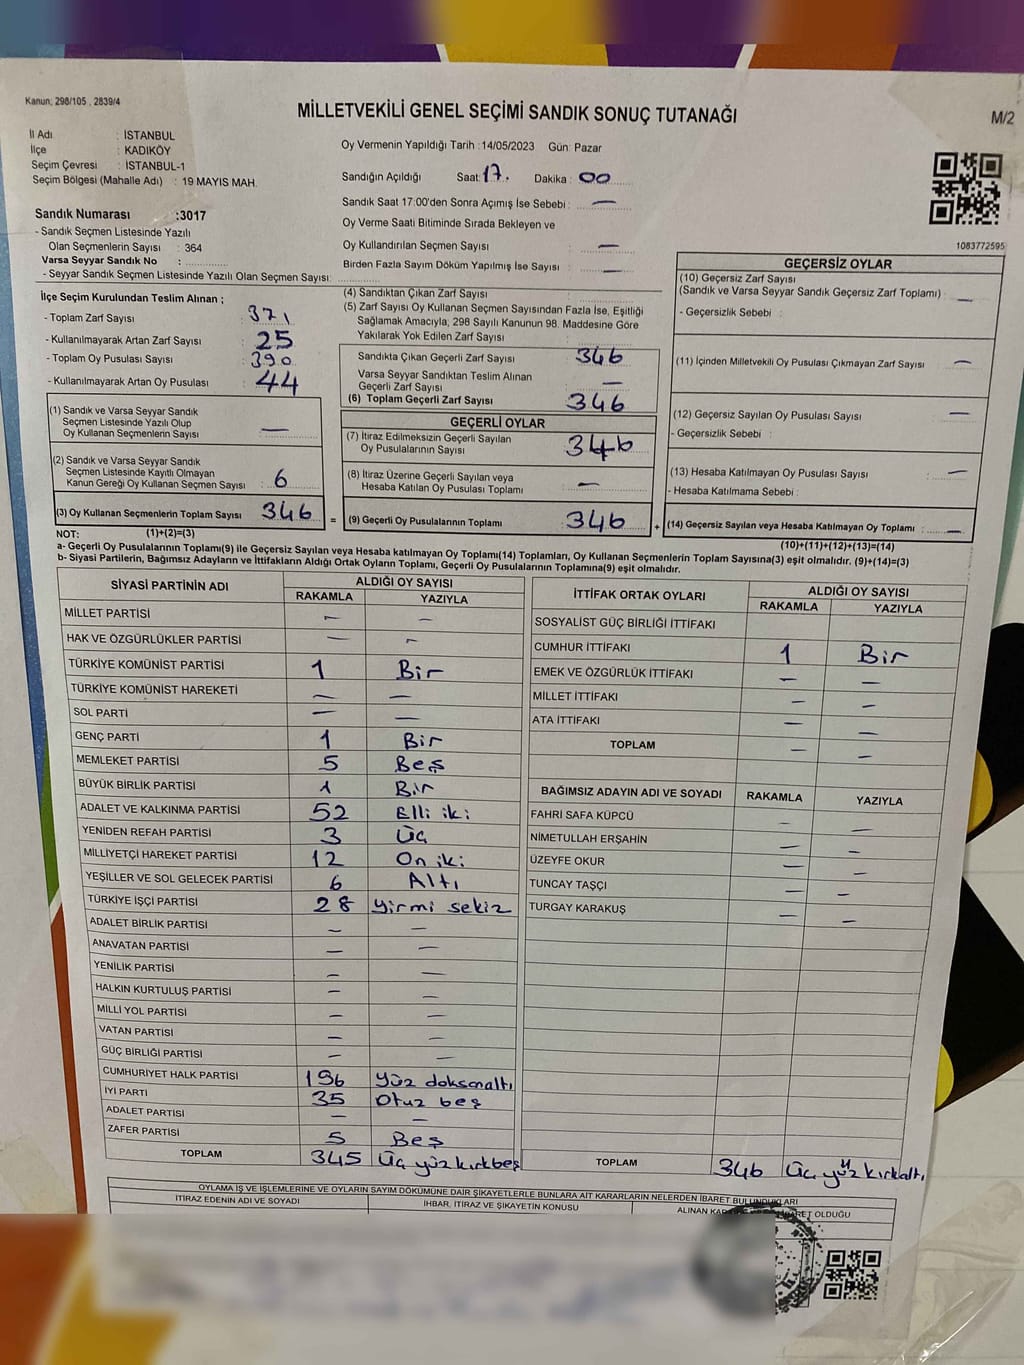 Kanun; 298/105 , 2839/4
MİLLETVEKİLİ GENEL SEÇİMİ SANDIK SONUÇ TUTANAĞI
M/2
İl Adı : İSTANBUL
İlçe : KADIKÖY
Seçim Çevresi : İSTANBUL-1
Seçim Bölgesi (Mahalle Adı) : 19 MAYIS MAH.
Sandık Numarası :3017
- Sandık Seçmen Listesinde Yazılı
Olan Seçmenlerin Sayısı : 364
Varsa Seyyar Sandık No :
- Seyyar Sandık Seçmen Listesinde Yazılı Olan Seçmen Sayısı:
Oy Vermenin Yapıldığı Tarih :14/05/2023 Gün: Pazar
Sandığın Açıldığı Saat: 17. Dakika : 00
Sandık Saat 17:00'den Sonra Açımış İse Sebebi : —
Oy Verme Saati Bitiminde Sırada Bekleyen ve
Oy Kullandırılan Seçmen Sayısı : —
Birden Fazla Sayım Döküm Yapılmış İse Sayısı : —
1083772595
İlçe Seçim Kurulundan Teslim Alınan ;
- Toplam Zarf Sayısı : 371
- Kullanılmayarak Artan Zarf Sayısı : 25
- Toplam Oy Pusulası Sayısı : 390
- Kullanılmayarak Artan Oy Pusulası : 44
(1) Sandık ve Varsa Seyyar Sandık
Seçmen Listesinde Yazılı Olup
Oy Kullanan Seçmenlerin Sayısı : —
(2) Sandık ve Varsa Seyyar Sandık
Seçmen Listesinde Kayıtlı Olmayan
Kanun Gereği Oy Kullanan Seçmen Sayısı : 6
(3) Oy Kullanan Seçmenlerin Toplam Sayısı 346
(1)+(2)=(3)
(4) Sandıktan Çıkan Zarf Sayısı :
(5) Zarf Sayısı Oy Kullanan Seçmen Sayısından Fazla İse, Eşitliği
Sağlamak Amacıyla, 298 Sayılı Kanunun 98. Maddesine Göre
Yakılarak Yok Edilen Zarf Sayısı :
Sandıkta Çıkan Geçerli Zarf Sayısı 346
Varsa Seyyar Sandıktan Teslim Alınan
Geçerli Zarf Sayısı : —
(6) Toplam Geçerli Zarf Sayısı 346
GEÇERLİ OYLAR
(7) İtiraz Edilmeksizin Geçerli Sayılan
Oy Pusulalarının Sayısı : 346
(8) İtiraz Üzerine Geçerli Sayılan veya
Hesaba Katılan Oy Pusulası Toplamı : —
= (9) Geçerli Oy Pusulalarının Toplamı : 346
GEÇERSİZ OYLAR
(10) Geçersiz Zarf Sayısı
(Sandık ve Varsa Seyyar Sandık Geçersiz Zarf Toplamı) : —
- Geçersizlik Sebebi :
(11) İçinden Milletvekili Oy Pusulası Çıkmayan Zarf Sayısı : —
(12) Geçersiz Sayılan Oy Pusulası Sayısı : —
- Geçersizlik Sebebi :
(13) Hesaba Katılmayan Oy Pusulası Sayısı : —
- Hesaba Katılmama Sebebi :
+ (14) Geçersiz Sayılan veya Hesaba Katılmayan Oy Toplamı : —
(10)+(11)+(12)+(13)=(14)
NOT:
a- Geçerli Oy Pusulalarının Toplamı(9) ile Geçersiz Sayılan veya Hesaba katılmayan Oy Toplamı(14) Toplamları, Oy Kullanan Seçmenlerin Toplam Sayısına(3) eşit olmalıdır. (9)+(14)=(3)
b- Siyasi Partilerin, Bağımsız Adayların ve İttifakların Aldığı Ortak Oyların Toplamı, Geçerli Oy Pusulalarının Toplamına(9) eşit olmalıdır.
SİYASİ PARTİNİN ADI ALDIĞI OY SAYISI
RAKAMLA YAZIYLA
MİLLET PARTİSİ — —
HAK VE ÖZGÜRLÜKLER PARTİSİ — —
TÜRKİYE KOMÜNİST PARTİSİ 1 Bir
TÜRKİYE KOMÜNİST HAREKETİ — —
SOL PARTİ — —
GENÇ PARTİ 1 Bir
MEMLEKET PARTİSİ 5 Beş
BÜYÜK BİRLİK PARTİSİ 1 Bir
ADALET VE KALKINMA PARTİSİ 52 Elli iki
YENİDEN REFAH PARTİSİ 3 Üç
MİLLİYETÇİ HAREKET PARTİSİ 12 On iki
YEŞİLLER VE SOL GELECEK PARTİSİ 6 Altı
TÜRKİYE İŞÇİ PARTİSİ 28 Yirmi sekiz
ADALET BİRLİK PARTİSİ — —
ANAVATAN PARTİSİ — —
YENİLİK PARTİSİ — —
HALKIN KURTULUŞ PARTİSİ — —
MİLLİ YOL PARTİSİ — —
VATAN PARTİSİ — —
GÜÇ BİRLİĞİ PARTİSİ — —
CUMHURİYET HALK PARTİSİ 196 Yüz doksanaltı
İYİ PARTİ 35 Otuz beş
ADALET PARTİSİ — —
ZAFER PARTİSİ 5 Beş
TOPLAM 345 Üç yüz kırkbeş
İTTİFAK ORTAK OYLARI ALDIĞI OY SAYISI
RAKAMLA YAZIYLA
SOSYALİST GÜÇ BİRLİĞİ İTTİFAKI
CUMHUR İTTİFAKI 1 Bir
EMEK VE ÖZGÜRLÜK İTTİFAKI — —
MİLLET İTTİFAKI — —
ATA İTTİFAKI — —
TOPLAM — —
BAĞIMSIZ ADAYIN ADI VE SOYADI RAKAMLA YAZIYLA
FAHRİ SAFA KÜPCÜ — —
NİMETULLAH ERŞAHİN — —
ÜZEYFE OKUR — —
TUNCAY TAŞÇI — —
TURGAY KARAKUŞ — —
TOPLAM 346 Üç yüz kırkaltı
OYLAMA İŞ VE İŞLEMLERİNE VE OYLARIN SAYIM DÖKÜMÜNE DAİR ŞİKAYETLERLE BUNLARA AİT KARARLARIN NELERDEN İBARET BULUNDUKLARI
İTİRAZ EDENİN ADI VE SOYADI İHBAR, İTİRAZ VE ŞİKAYETİN KONUSU ALINAN OLDUĞU